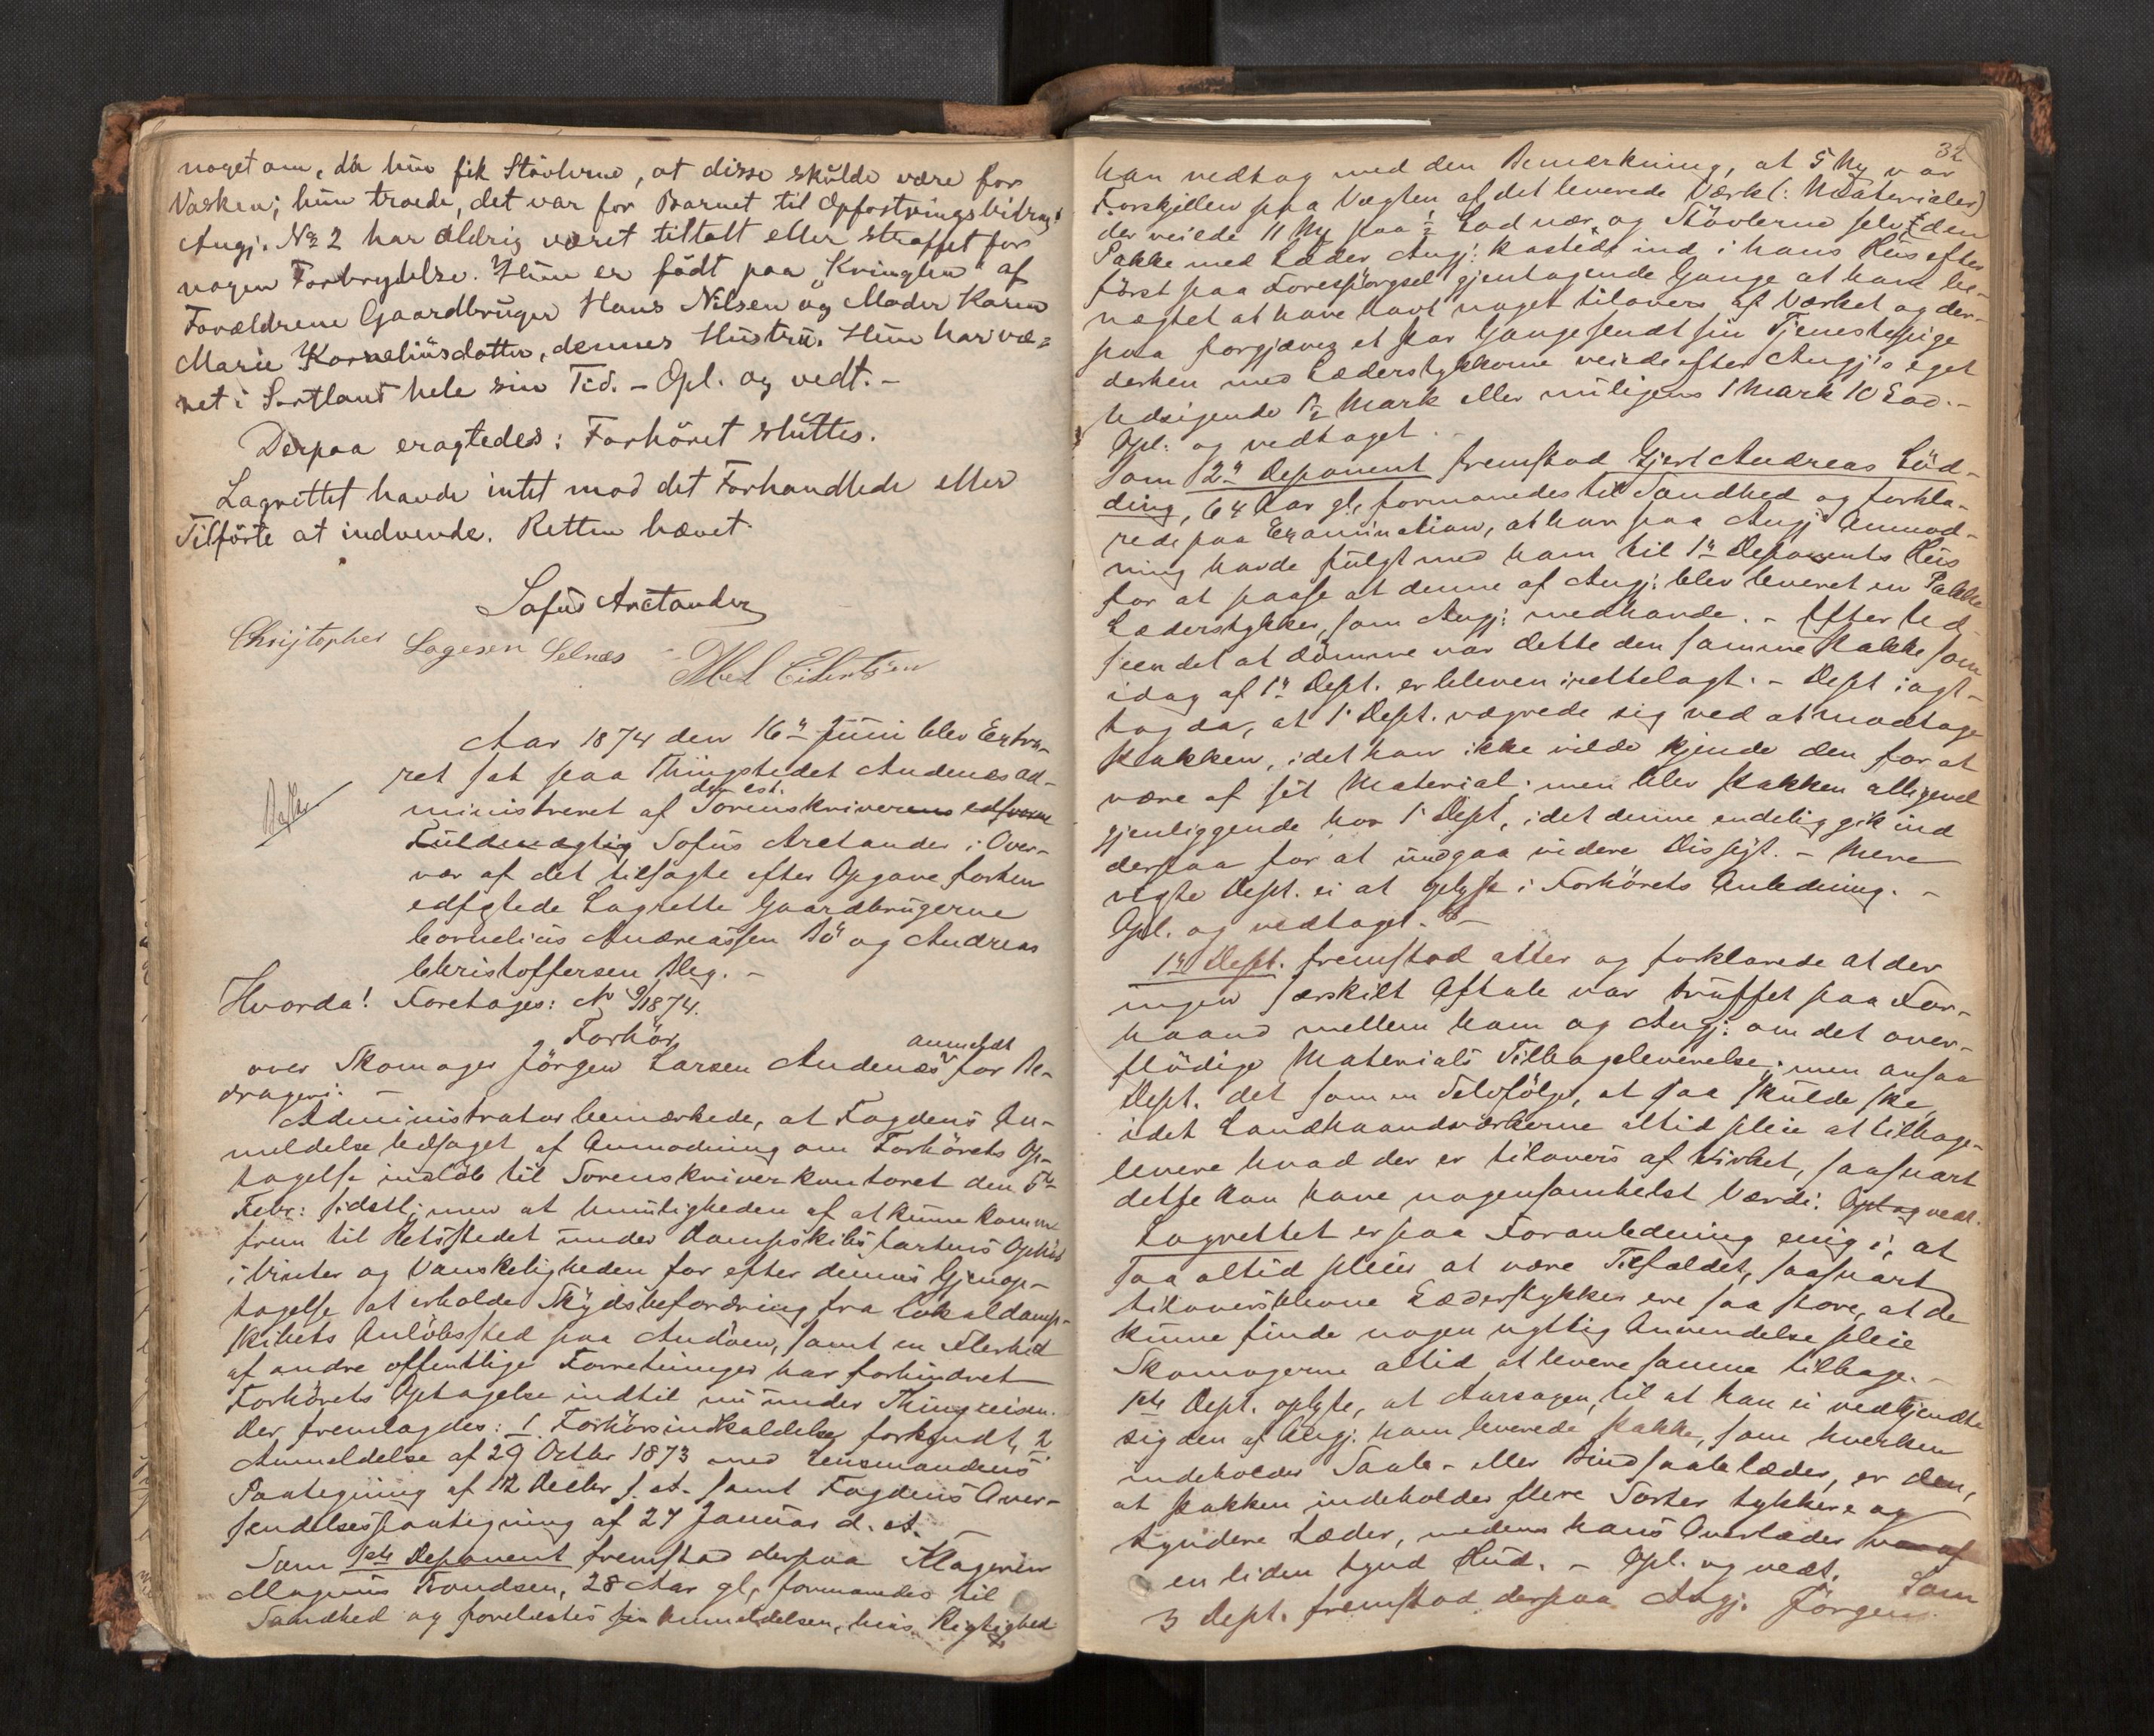 noget om, da hun fik Stövlerne, at disse skulde være for
Vasken; hun troede, det var for Barnet til Opfostringsbidrag.
Angj. No 2 har aldrig været tiltalt eller straffet for
nogen Forbrydelse. Hun er födt paa "Kringlen" af
Forældrene Gaardbruger Hans Nilsen og Moder Karen
Marie Korneliusdatter, dennes Hustru. Hun har væ=
ret i Sortland hele sin Tid. - Opl. og vedt. -
Derpaa eragtedes: Forhöret sluttes.
Lagrettet havde intet mod det Forhandlede eller
Tilförte at indvende. Retten hævet.
Sofus Arctander
Christopher Lagesen Selnæs Abel Eilertsen
Aar 1874 den 16de Juni blev Extra-
ret sat paa Thingstedet Andenæs ad-
der est.
ministreret af Sorenskriverens edsvorne
Fuldmægtig Sofus Arctander i Over-
vær af det tilsagte efter Opgave forhen
edfæstede Lagrette Gaardbrugerne
Cornelius Andreassen Bö og Andreas
Christoffersen Bleg. -
Hvorda! Foretages: No 9/1874.
Forhör
anmeldt
over Skomager Jörgen Larsen Andenæs for Be-
drageri.
Administrator bemærkede, at Fogdens An-
meldelse ledsaget af Anmodning om Forhörets Op-
tagelse indlöb til Sorenskriverkontoret den 5te
Febr: sidstl; men at Umuligheden af at kunne komme
frem til Retsstedet under Dampskibsfartens Ophör
i Vinter og Vanskeligheden for efter dennes Gjenop-
tagelse at erholde Skydsbefordring fra Lokaldamp-
skibets Anlöbssted paa Andöen, samt en Flerhed
af andre offentlige Forretninger har forhindret
Forhörets Optagelse indtil nu under Thingreisen.
Der fremlagdes: 1. Forhörsindkaldelse forkyndt, 2
Anmeldelse af 29 Octbr 1873 med Lensmandens
Paategning af 12 Decbr s. A. samt Fogdens Over-
sendelsespaategning af 27 Januar d. A. -
Som 1ste Deponent fremstod derpaa Klageren
Magnus Trondsen, 28 Aar gl, formanedes til
Sandhed og forelæstes sin Anmeldelsen, hvis Rigtighed
32
han vedtog med den Bemærkning, at 5 Mg var
Forskjellen paa Vægten af det leverede Værk (: Materialer)
der veiede 11 Mg paa ½ Lod nær og Stövlerne selv & den
Pakke med Læder Angj: kastede ind i hans Hus efter
först paa Forespörgsel gjentagende Gange at have be-
nægtet at have havt noget tilovers af Værket og der-
paa forgjæves et Par Gange sendt sin Tjenestepige
derhen med Læderstykkerne veiede efter Angj's eget
Udsigende 1½ Mark eller muligens 1 Mark 10 Lod. -
Opl. og vedtaget. -
Som 2den Deponent fremstod Gjert Andreas Löd-
ding, 64 Aar gl, formanedes til Sandhed og forkla-
rede paa Examination, at han paa Angj Anmod-
ning havde fulgt med ham til 1ste Deponents Hus
for at paase at denne af Angj: blev leveret en Pakke
Læderstykker, som Angj: medhavde. - Efter Ud-
seendet at dömme var dette den samme Pakke som
idag af 1ste Dept. er bleven irettelagt. - Dept iagt-
tog da, at 1 Dept. vægrede sig ved at modtage
Pakken, idet han ikke vilde kjende den for at
være af sit Material; men blev Pakken alligevel
gjenliggende hos 1 Dept, idet denne endelig gik ind
derpaa for at undgaa videre Dispyt. - Mere
vegte Dept. ei at oplyse i Forhörets Anledning. -
Opl. og vedtaget. -
1ste Dept. fremstod atter og forklarede at der
ingen særskilt Aftale var truffet paa For-
haand mellem ham og Angj: om det over-
flödige Materials Tilbageleverelse; men ansaa
Dept. det som en Selvfölge, at saa skulde ske
idet Landhaandværkerne altid pleie at tilbage-
levere hvad der er tilovers af Virket, saasnart
dette kan have nogensomhelst Værdi. Opl og vedt.
Lagrettet er paa Foranledning enig i, at
saa altid pleier at være Tilfældet, saasnart
tiloversblevne Læderstykker ere saa store, at de
kunne finde nogen nyttig Anvendelse pleie
Skomagerne altid at levere samme tilbage. -
1ste Dept. oplyste, at Aarsagen til at han ei vedkjendte
sig den af Angj: ham leverede Pakke, som hverken
indeholder Saale- eller Bindsaalelæder, er den,
at Pakken indeholder flere Sorter tykkere og
tyndere Læder, medens hans Overlæder var af
en liden tynd Hud. - Opl. og vedt. Som
3 Dept. fremstod derpaa Angj. Jörgen